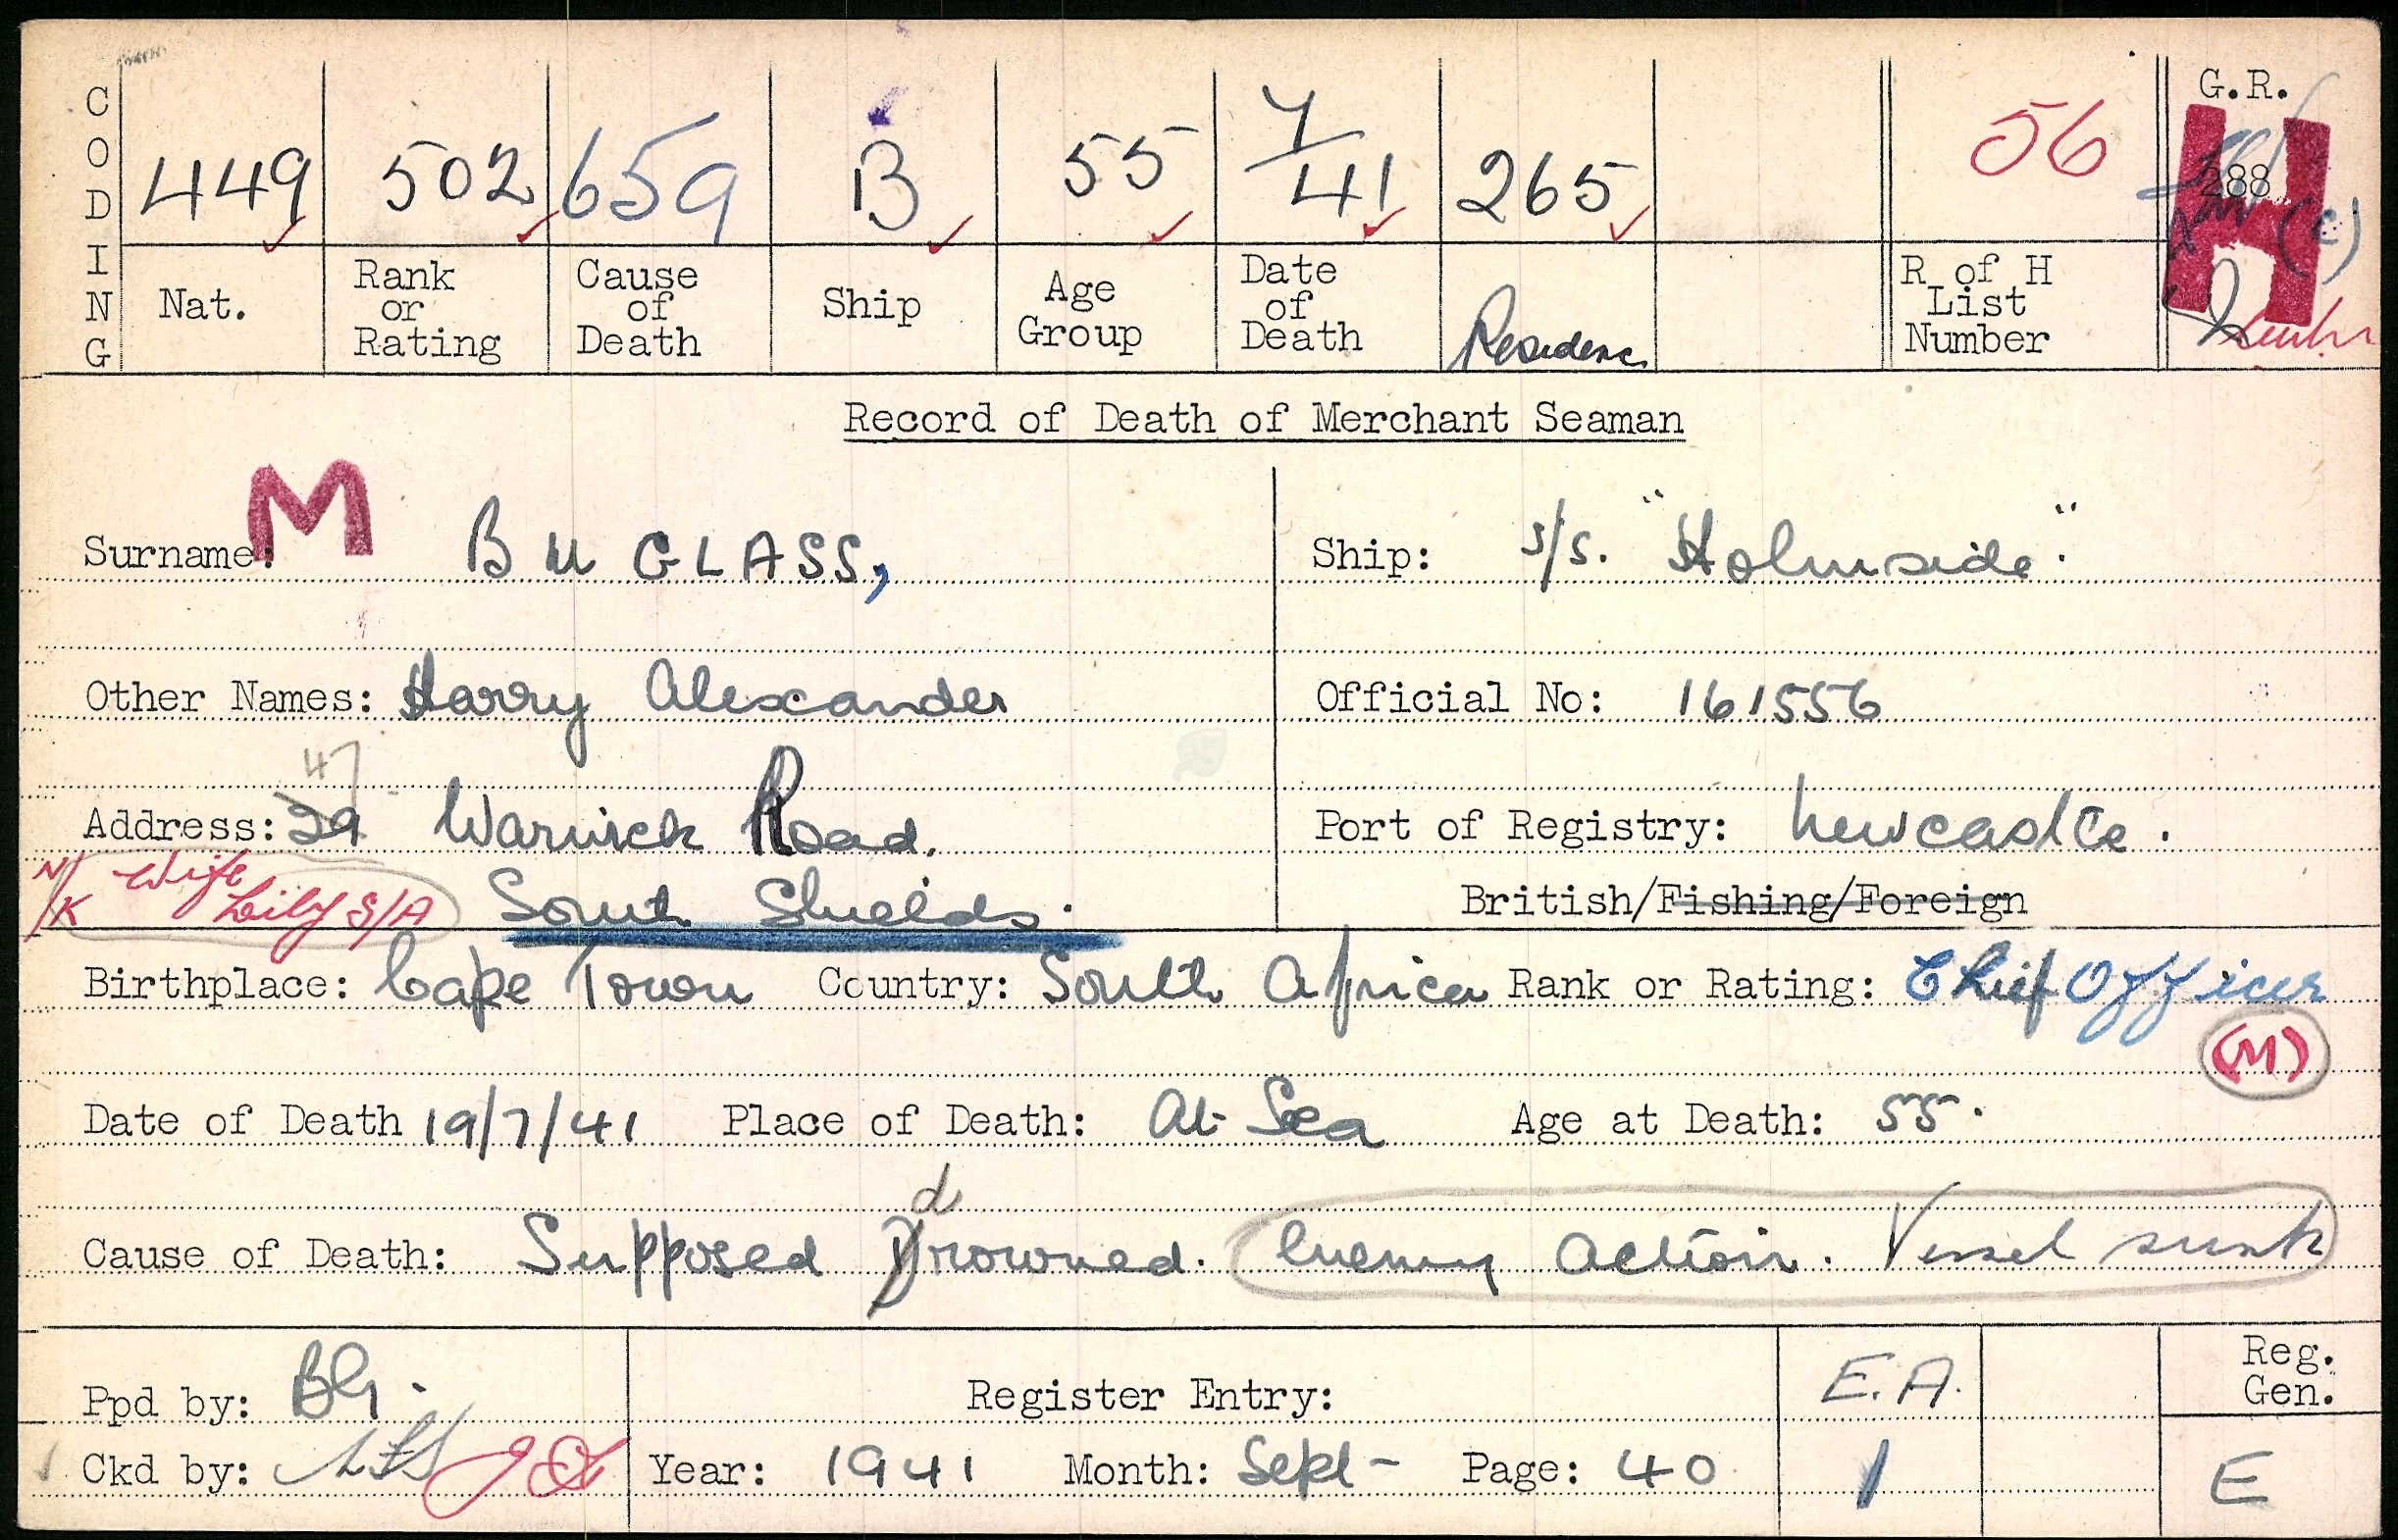 CODING
449 502 659 B 55 7/41 265 56 G.R.
288
(c)
Nat. Rank or Rating Cause of Death Ship Age Group Date of Death Residence R of H List Number H
Record of Death of Merchant Seaman
M
Surname: BUGLASS, Ship: S/S. "Holmside".
Other Names: Harry Alexander Official No: 161556
47
Address: 29 Warwick Road. Port of Registry: Newcastle.
N/K Wife Lily S/A South Shields. British/Fishing/Foreign
Birthplace: Cape Town Country: South Africa Rank or Rating: Chief Officer
(M)
Date of Death 19/7/41 Place of Death: At Sea Age at Death: 55.
d
Cause of Death: Supposed Drowned. Enemy Action. Vessel sunk
Ppd by: BG. Register Entry: E.A. Reg. Gen.
Ckd by: Year: 1941 Month: Sept- Page: 40 1 E